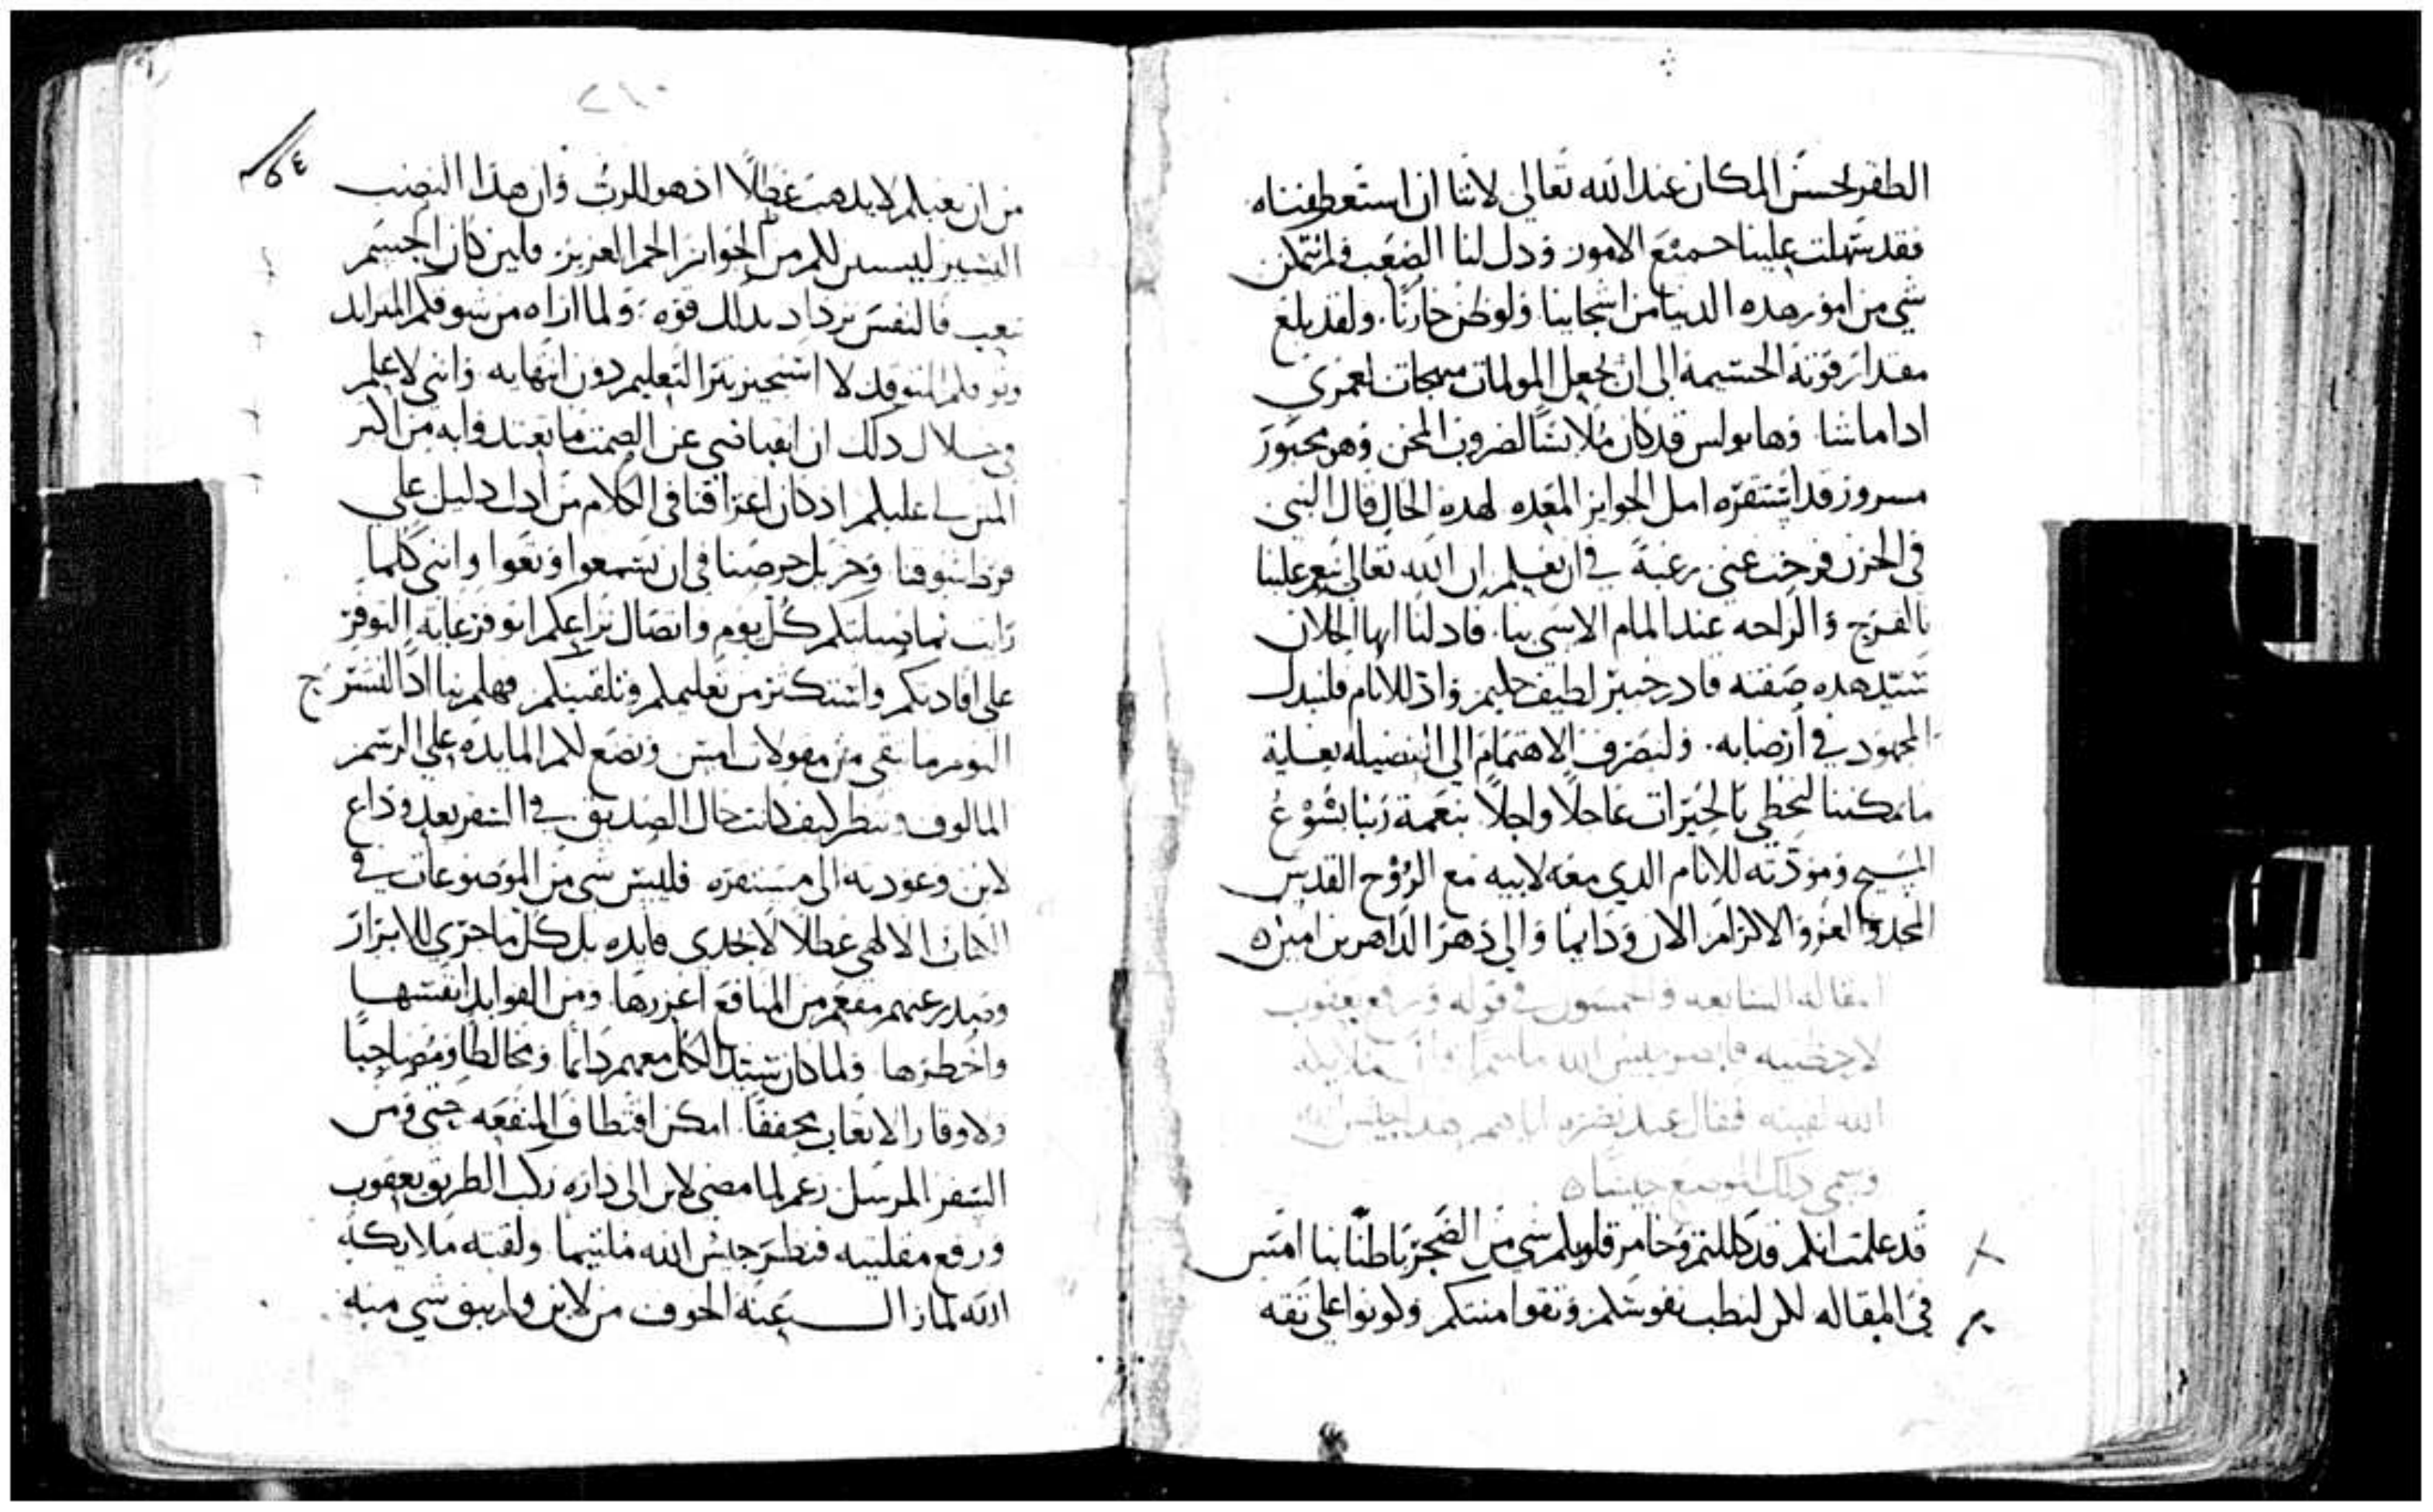 الظفر لحسن المكان عند الله تعالى لاننا ان استعطفناه
فقد سهلت علينا جميع الامور ودل لنا الصعب فلم يتمكن
شي من امور هده الدنيا من اشجابنا ولو ظن حازنًا. ولقد بلغ
مقدار قوته الجسيمة الى ان يجعل المولمات مبهجات لعمري
ادا ماشا وها بولس قد كان ملابسًا لضروب المحن وهو محبور
مسرور قد استفزه امل الجوايز المعده لهده الحال قال النبي
في الحزن فرجت عني رغبة في ان نعلم ان الله تعالى ينعم علينا
بالفرج والراحه عند المام الاسى بنا. فاد لنا ايها الخلان
سيد هده صفته قادر خبير لطيف حليم واد للانام فلنبدل
المجهود في ارضايه. ولنصرف الاهتمام الى الفضيله بغاية
ما يمكننا لنحظى بالخيرات عاجلًا واجلًا بنعمة ربنا يشوع
المسيح ومودته للانام الدي معه لابيه مع الروح القدس
المجد والعز والاكرام الان ودايمًا والى دهر الداهرين امين
المقاله السابعه والخمسون في قوله ورفع يعقوب
الله لقيته فقال عند نظره اياهم هدا جيش الله
وسمى دلك الموضع جيشان
قد علمت انكم قد كللتم وخامر قلوبكم شي من الضجر باطنابنا امس
في المقاله لكن لتطب نفوسكم وتقوا منتكم وكونوا على ثقه
٢١٠
من ان تعبكم لا يدهب عطلًا اد هو للرب وان هدا النصب
اليسير ليسير لكم من الجوايز الجم العزيز فلين كان الجسم
تعب فالنفس تزداد بدلك قوه. ولما اراه من شوقكم المتزايد
وتوقكم المتوقد لا استجيز بتر التعليم دون انتهايه وانني لاعلم
في خلال دلك ان انقباضي عن الصمت ما تعتدوا به من اكبر
المنن لي عليكم اد كان اغراقنا في الكلام من ادل دليل على
فرط شوقنا وجزيل حرصنا في ان تسمعوا وتعوا وانني كلما
رايت نمايسالتكم كل يوم واتصال نزاعكم اتوفر غاية التوفر
على افادتكم واستكثر من تعليمكم وتلقينكم فهلم بنا ادًا لنشرح
اليوم ما بقي من مقولات امس ونضع لكم المايده على الرسم
المالوف وننظر كيف كانت حال الصديق في السفر بعد وداع
لابن وعودته الى مستقره فليس شي من الموضوعات في
الكتاب الالهي عطلًا لا يجدي فايده بل كل ما جرى للابرار
وصدر عنهم مفعم من المنافع اغزرها ومن الفوايد انفسها
واخطرها ولما كان سيد الكل معهم دايمًا ومخالطًا ومصاحبًا
ولاوقار الاتعاب مخففًا. امكن اقتطاف المنفعه حتى ومن
السفر المرسل زعم لما مضى لابن الى داره ركب الطريق يعقوب
ورفع مقلتيه فنظر جيش الله ملتيمًا ولقيته ملايكة
الله لما زال عنه الخوف من لابن ولم يبق شي منه